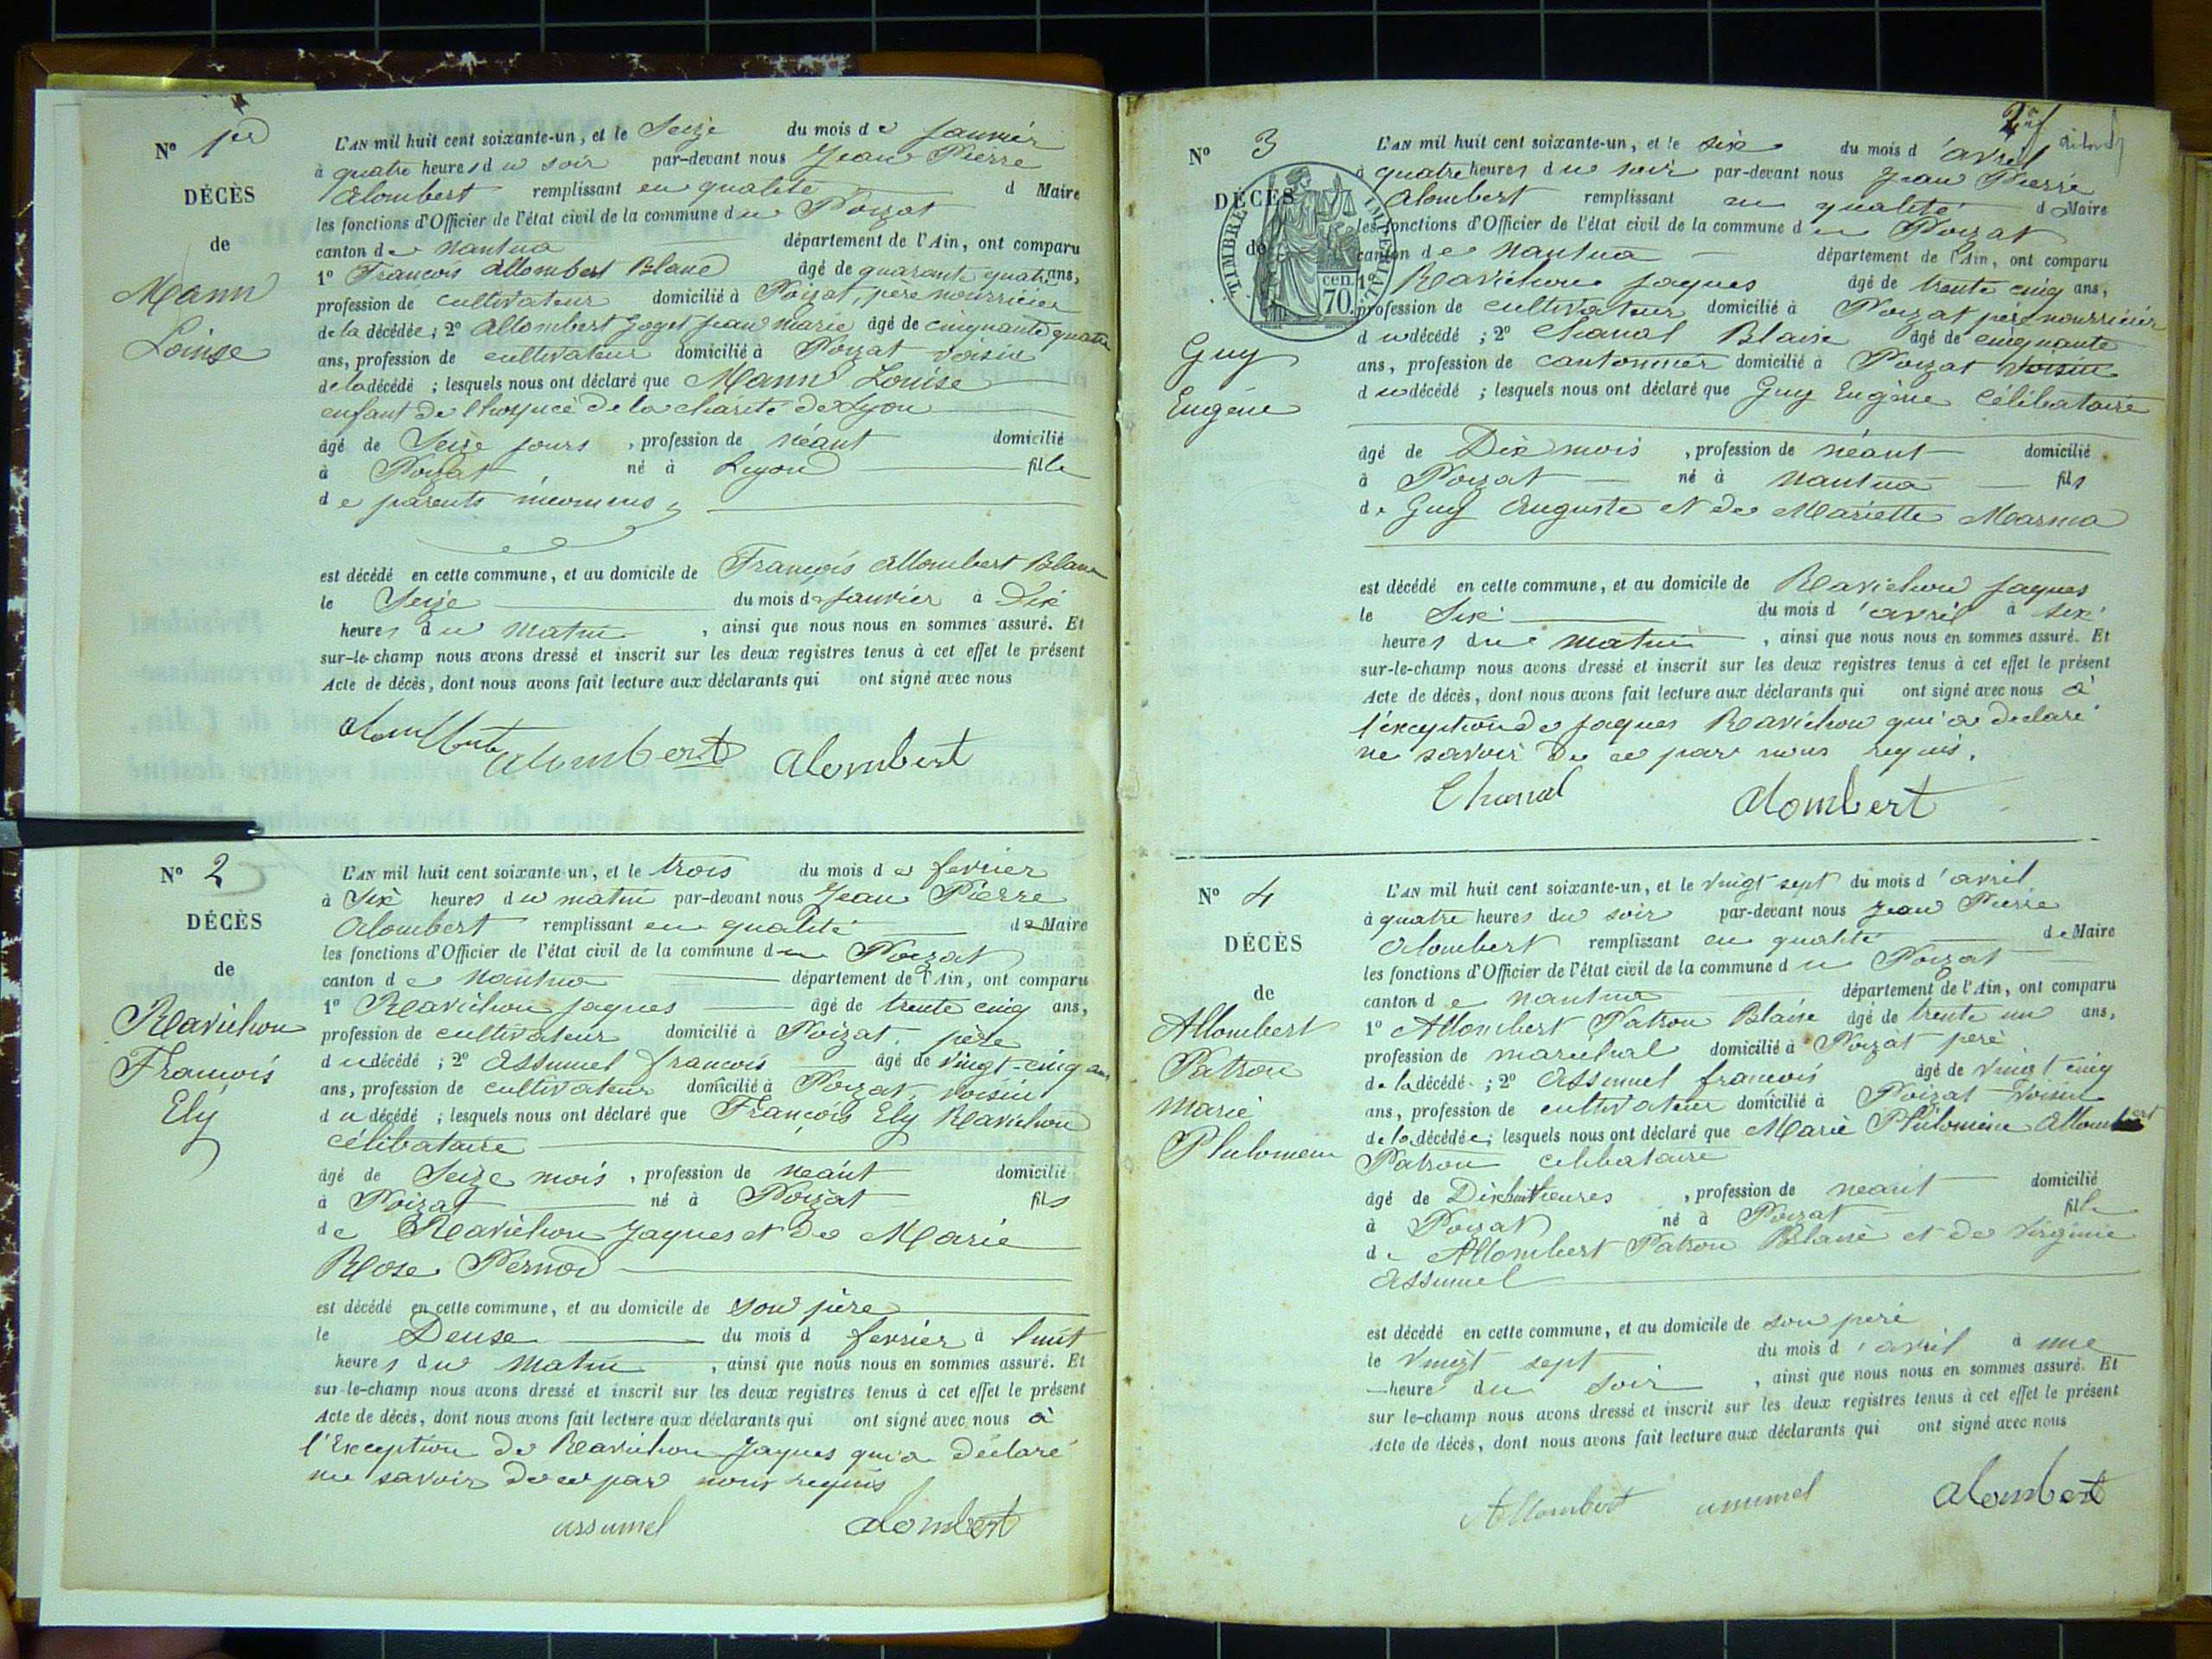 N° 1er
DÉCÈS
de
Mann
Louise
L'AN mil huit cent soixante-un, et le Seize du mois de Janvier
à quatre heures du soir par-devant nous Jean Pierre
Alombert remplissant en qualité d Maire
les fonctions d'Officier de l'état civil de la commune du Poizat
canton de Nantua département de l'Ain, ont comparu
1° François Allombert Blanc âgé de quarante quatre ans,
profession de cultivateur domicilié à Poizat, père nourricier
de la décédée ; 2° Allombert Goget Jean Marie âgé de cinquante quatre
ans, profession de cultivateur domicilié à Poizat voisin
de la décédé ; lesquels nous ont déclaré que Mann Louise
enfant de l'hospice de la charité de Lyon
âgé de Seize jours , profession de néant domicilié
à Poizat né à Lyon fille
de parents inconnus
est décédé en cette commune, et au domicile de François Allombert Blanc
le Seize du mois de Janvier à Dix
heures du matin , ainsi que nous nous en sommes assuré. Et
sur-le-champ nous avons dressé et inscrit sur les deux registres tenus à cet effet le présent
Acte de décès, dont nous avons fait lecture aux déclarants qui ont signé avec nous
alombert alombert
N° 2
DÉCÈS
de
Ravichon
François
Ely
L'AN mil huit cent soixante-un, et le trois du mois de fevrier
à Six heures du matin par-devant nous Jean Pierre
Alombert remplissant en qualité de Maire
les fonctions d'Officier de l'état civil de la commune du Poizat
canton de Nantua département de l'Ain, ont comparu
1° Ravichon Jaques âgé de trente cinq ans,
profession de cultivateur domicilié à Poizat, père
du décédé ; 2° Assumel françois âgé de vingt-cinq ans
ans, profession de cultivateur domicilié à Poizat, voisin
du décédé ; lesquels nous ont déclaré que François Ely Ravichon
célibataire
âgé de Seize mois , profession de neant domicilié
à Poizat né à Poizat fils
de Ravichon Jaques et de Marie
Rose Pernod
est décédé en cette commune, et au domicile de son père
le Deuse du mois d fevrier à huit
heures du matin , ainsi que nous nous en sommes assuré. Et
sur-le-champ nous avons dressé et inscrit sur les deux registres tenus à cet effet le présent
Acte de décès, dont nous avons fait lecture aux déclarants qui ont signé avec nous à
l'Exception de Ravichon Jaques qui a déclaré
ne savoir de ce par nous requis
assumel alombert
N° 3
DÉCÈS
de
TIMBRE IMPÉRIAL
70 cen.
Guy
Eugene
L'AN mil huit cent soixante-un, et le six du mois d'avril
à quatre heures du soir par-devant nous Jean Pierre
Alombert remplissant en qualité d Maire
les fonctions d'Officier de l'état civil de la commune du Poizat
canton de Nantua département de l'Ain, ont comparu
1° Ravichon Jaques âgé de trente cinq ans,
profession de cultivateur domicilié à Poizat père nourricier
du décédé ; 2° Chanal Blaise âgé de cinquante
ans, profession de cantonnier domicilié à Poizat voisin
du décédé ; lesquels nous ont déclaré que Guy Eugène Célibataire
âgé de Dix mois , profession de néant domicilié
à Poizat né à Nantua fils
de Guy Auguste et de Mariette Marma
est décédé en cette commune, et au domicile de Ravichon Jaques
le Six du mois d'avril à six
heures du matin , ainsi que nous nous en sommes assuré. Et
sur-le-champ nous avons dressé et inscrit sur les deux registres tenus à cet effet le présent
Acte de décès, dont nous avons fait lecture aux déclarants qui ont signé avec nous à
l'exception de Jaques Ravichon qui a declaré
ne savoir de ce par nous requis.
Chanal alombert
N° 4
DÉCÈS
de
Allombert
Patron
Marie
Philomene
L'AN mil huit cent soixante-un, et le vingt sept du mois d'avril
à quatre heures du soir par-devant nous Jean Pierre
Alombert remplissant en qualité de Maire
les fonctions d'Officier de l'état civil de la commune du Poizat
canton de Nantua département de l'Ain, ont comparu
1° Allombert Patron Blaise âgé de trente un ans,
profession de maréchal domicilié à Poizat père
de la décédé ; 2° Assumel françois âgé de vingt cinq
ans, profession de cultivateur domicilié à Poizat voisin
de la décédée ; lesquels nous ont déclaré que Marie Philomène Allombert
Patron célibataire
âgé de Dix huit heures , profession de neant domicilié
à Poizat né à Poizat fille
de Allombert Patron Blaise et de Virginie
Assumel
est décédé en cette commune, et au domicile de son père
le vingt sept du mois d'avril à une
heure du soir , ainsi que nous nous en sommes assuré. Et
sur le-champ nous avons dressé et inscrit sur les deux registres tenus à cet effet le présent
Acte de décès, dont nous avons fait lecture aux déclarants qui ont signé avec nous
Allombert assumel alombert